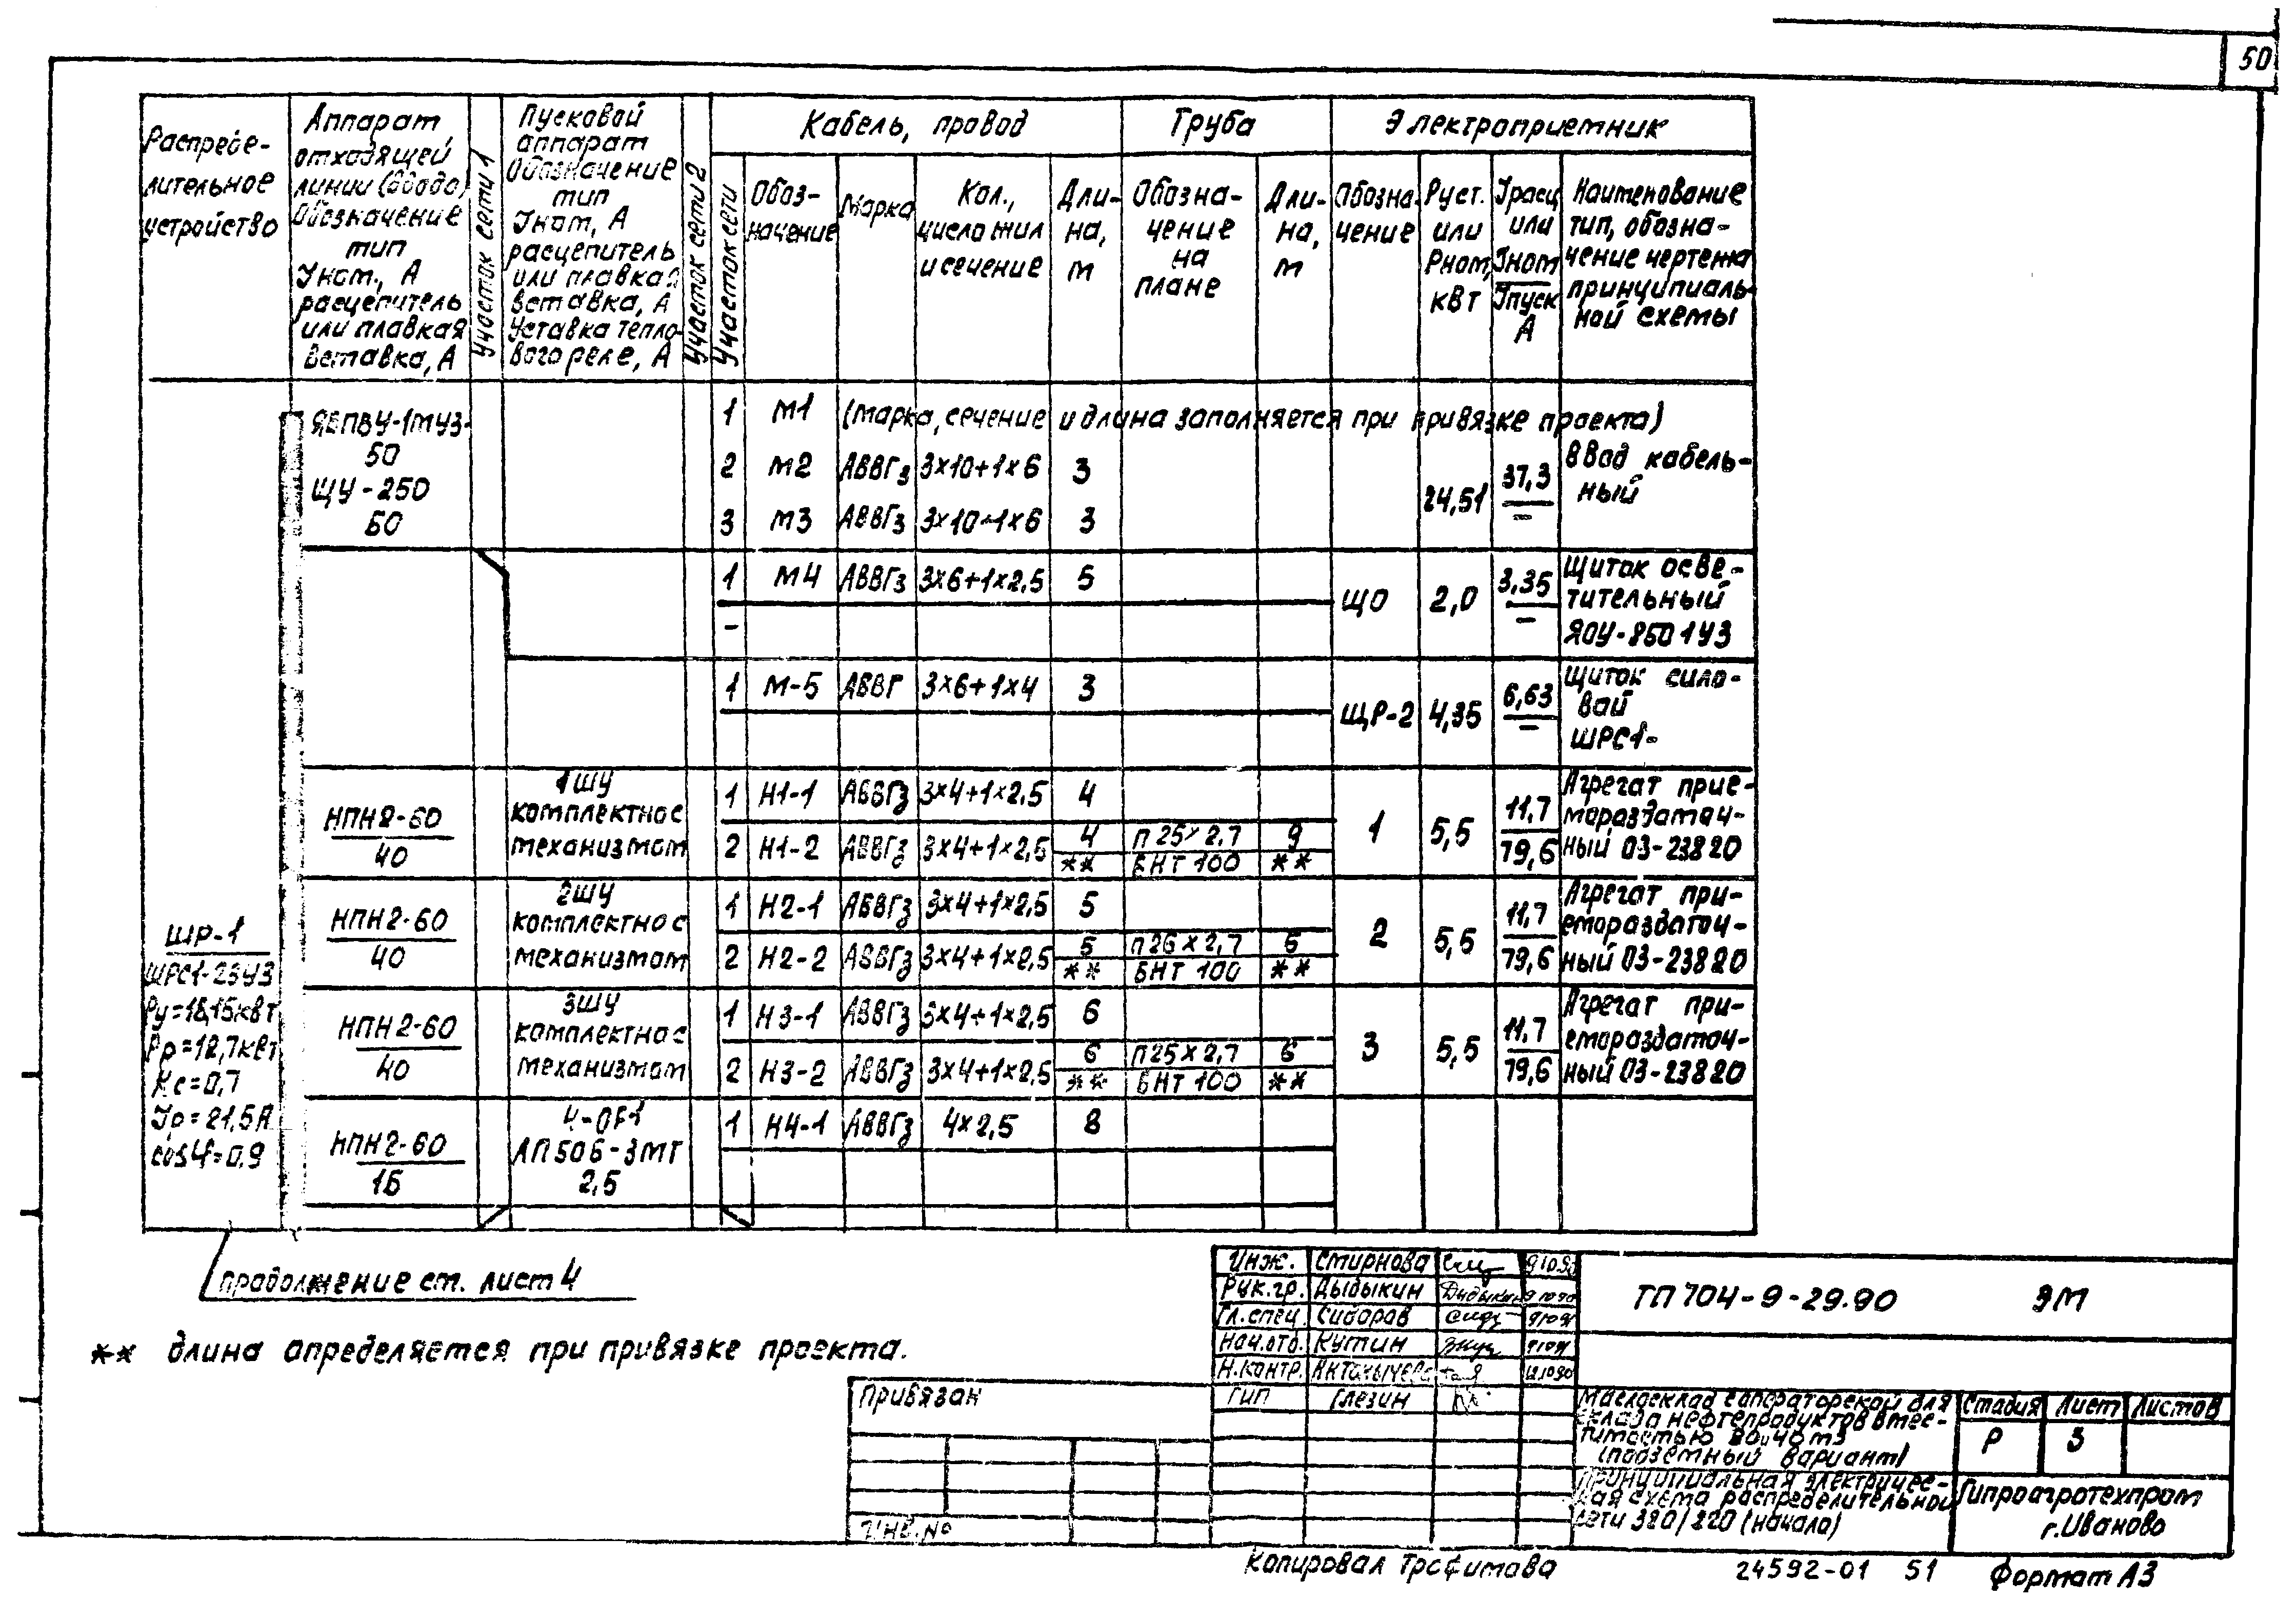 50
Распреде-
лительное
устройство
Аппарат
отходящей
линии (ввода)
Обозначение
тип
Iном., А
расцепитель
или плавкая
вставка, А
Участок сети 1
Пусковой
аппарат
Обозначение
тип
Iном, А
расцепитель
или плавкая
вставка, А
Уставка тепло-
вого реле, А
Участок сети 2
Кабель, провод
Участок сети
Обоз-
начение
Марка
Кол.,
число жил
и сечение
Дли-
на,
м
Труба
Обозна-
чение
на
плане
Дли-
на,
м
Электроприемник
Обозна-
чение
Руст.
или
Рном,
кВт
Iрасц
или
Iном
Iпуск
А
Наименование
тип, обозна-
чение чертежа
принципиаль-
ной схемы
ЯБПВУ-1МУ3-
50
ЩУ-250
50
1 М1 (марка, сечение и длина заполняется при привязке проекта)
2 М2 АВВГз 3×10+1×6 3
3 М3 АВВГз 3×10+1×6 3
24,51
37,3
–
Ввод кабель-
ный
1 М4 АВВГз 3×6+1×2,5 5
–
ЩО 2,0
3,35
–
Щиток осве-
тительный
ЯОУ-8501У3
1 М-5 АВВГ 3×6+1×4 3
ЩР-2 4,35
6,63
–
Щиток сило-
вой
ШРС1-
НПН2-60
40
1ШУ
комплектно с
механизмом
1 Н1-1 АВВГз 3×4+1×2,5 4
2 Н1-2 АВВГз 3×4+1×2,5
4 П25×2,7 9
** БНТ 100 **
1 5,5
11,7
79,6
Агрегат прие-
мораздаточ-
ный 03-23820
НПН2-60
40
2ШУ
комплектно с
механизмом
1 Н2-1 АВВГз 3×4+1×2,5 5
2 Н2-2 АВВГз 3×4+1×2,5
5 П26×2,7 5
** БНТ 100 **
2 5,5
11,7
79,6
Агрегат при-
емораздаточ-
ный 03-23820
НПН2-60
40
3ШУ
комплектно с
механизмом
1 Н3-1 АВВГз 3×4+1×2,5 6
2 Н3-2 АВВГз 3×4+1×2,5
6 П25×2,7 6
** БНТ 100 **
3 5,5
11,7
79,6
Агрегат при-
емораздаточ-
ный 03-23820
НПН2-60
16
4-QF1
АП50Б-3МТ
2,5
1 Н4-1 АВВГз 4×2,5 8
ШР-1
ШРС1-23У3
Ру=18,15квт
Рр=12,7квт
Кс=0,7
Iр=21,5А
cosφ=0,9
Продолжение см. лист 4
** длина определяется при привязке проекта.
Инж. Смирнова
Рук.гр. Дыдыкин
Гл.спец. Сидоров
Нач.отд. Кутин
Н.контр.
ГИП Глезин
ТП 704-9-29.90 ЭМ
Маслосклад с операторской для
склада нефтепродуктов вмес-
тимостью 80 и 40 м3
(подземный вариант)
Стадия Лист Листов
Р 3
Принципиальная электричес-
кая схема распределительной
сети 380/220 (начало)
Гипроагротехпром
г.Иваново
Привязан
Инв.№
Копировал Трофимова
24592-01 51
Формат А3